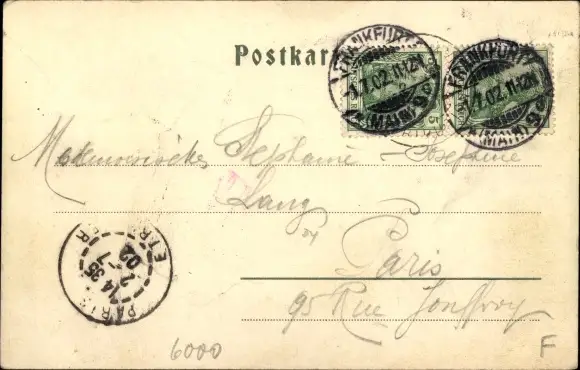 Postkarte
FRANKFURT
1.7.02.11-12N.
(MAIN) 9
FRANKFURT
1.7.02.11-12N.
(MAIN) 9
Stephanie - Josephine
Lang
Paris
95 Rue Jouffroy
PARIS
14 35
2-7
02
6000
F